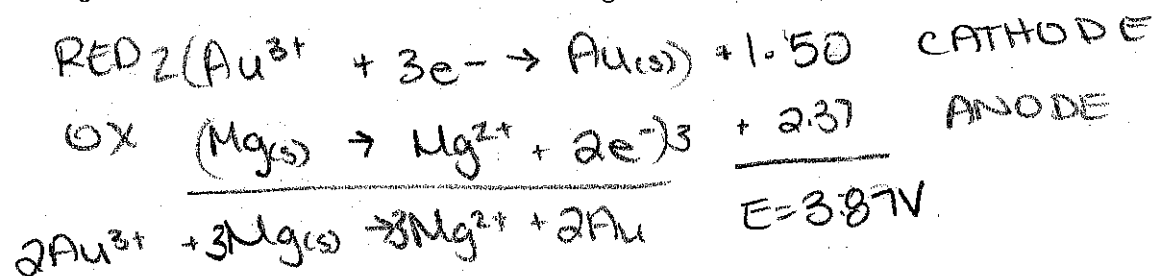 RED 2(Au³⁺ + 3e⁻ → Au(s)) + 1.50 CATHODE
OX (Mg(s) → Mg²⁺ + 2e⁻)3 + 2.37 ANODE
2Au³⁺ + 3Mg(s) → 3Mg²⁺ + 2Au E=3.87V